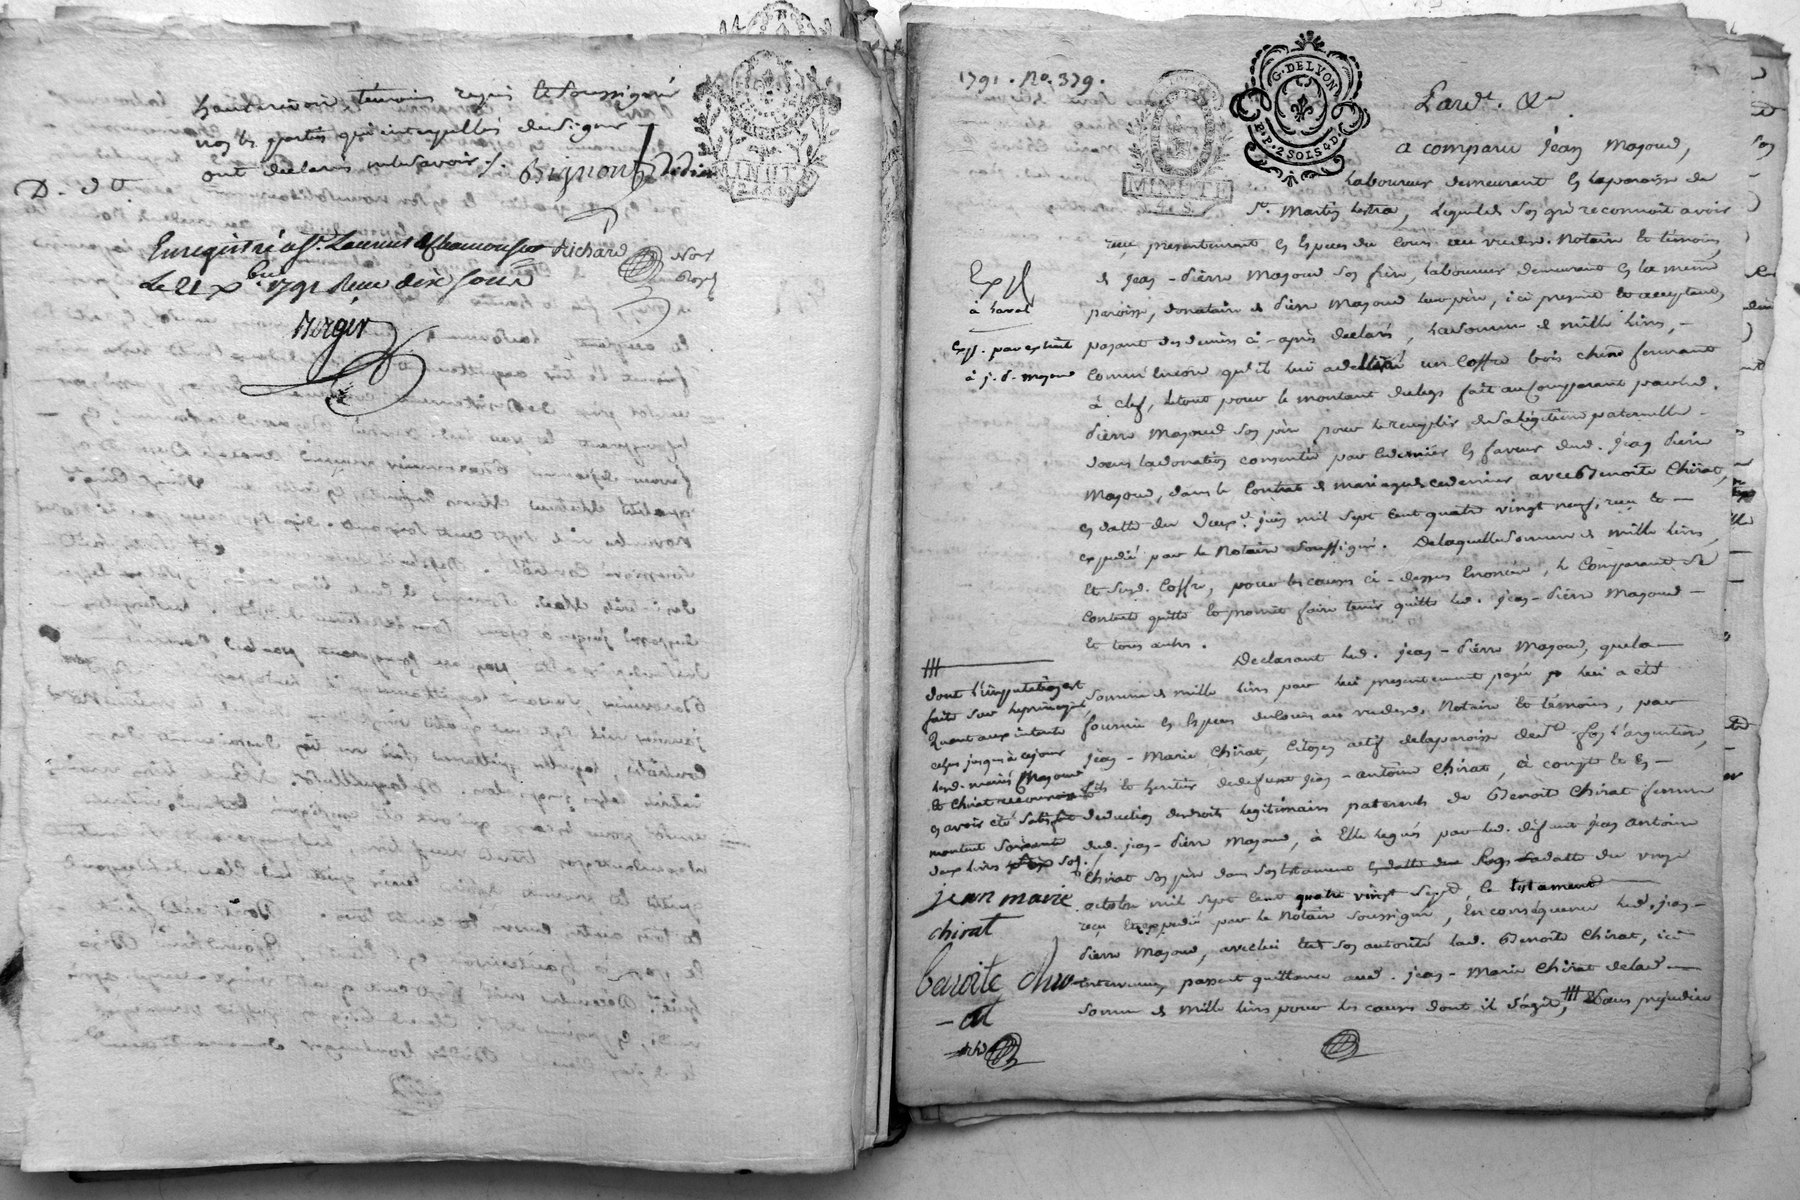 témoins requis et soussignés
non les parties qui interpellées de signer
ont declaré ne le savoir ./.
Bignon
D. d
MINUTE
Enregistré a St. Laurent de Chamousset Richard Not
Le 21 Xbre 1791 Reçu dix sous Royl
Verger
1791. No. 379.
G. DE LYON
P.P. 2 SOLS 4 D.
MINUTE
4. S.
Pard. &a.
a comparu jean Mazoud,
Laboureur demeurant en la paroisse de
St. Martin Lestra, Lequel de son gré reconnoit avoir
reçu presentement en Especes du Cours au vu des d. Notaire et témoins,
de jean-pierre Mazoud son frere, Laboureur demeurant en la même
paroisse, donataire de pierre Mazoud leur père, ici présent et acceptant,
payant des deniers ci-après declarés, La somme de mille livres,
comm'encore qu'il lui a delivré un Coffre bois chêne fermant
à clef, Letout pour le montant du legs fait au Comparant par led.
pierre Mazoud son père pour le remplir de sa légitime paternelle
dans la donation consentie par ce dernier en faveur dud. jean pierre
Mazoud, dans le Contrat de mariage de ce dernier avec Benoite Chirat,
en datte du deux juin mil sept cent quatre vingt neuf, reçu et
expedié par le Notaire soussigné. De laquelle somme de mille livres,
et dud. Coffre, pour les causes ci-dessus Enoncées, le Comparant se
contente quitte et promet faire tenir quitte led. jean-pierre Mazoud
et tous autres.
Declarant led. jean-pierre Mazoud, que la
somme de mille livres par lui presentement payée lui a été
fournie en Especes du Cours au vu des d. Notaire et témoins, par
jean-Marie Chirat, Citoyen actif de la paroisse de ste. foy l'argentière,
fils et heritier de defunt jean-antoine Chirat, à compte et en
deduction des droits legitimaires paternels de Benoite Chirat femme
dud. jean-pierre Mazoud, à Elle legués par led. défunt jean antoine
Chirat son père dans son testament du vingt
octobre mil sept cent quatre vingt sept, le testament
reçu et expedié par le Notaire soussigné, En conséquence led. jean-
pierre Mazoud, avec lui de son autorité lad. Benoite Chirat, ici
intervenus, passent quittance aud. jean-Marie Chirat de lad.
somme de mille livres pour les causes dont il s'agit, /// sans prejudice
Exp.
à Laval
exp. par extrait
à j. p. mazoud
///
dont l'imputation est
faite sur le principal,
Quant aux interets
echus jusqu'à ce jour
Lesd. mariés Mazoud
et Chirat reconnoissent
en avoir été satisfait
montant soixante
deux livres sols.
jean marie
chirat
benoite chir
- at